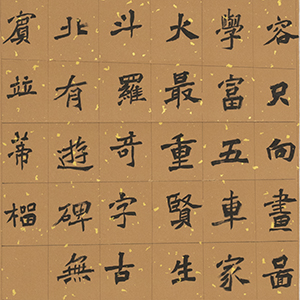 容只向畫圖
學富五車家
火最重賢生
斗羅奇字古
北有遊碑無
賓並蒂榴